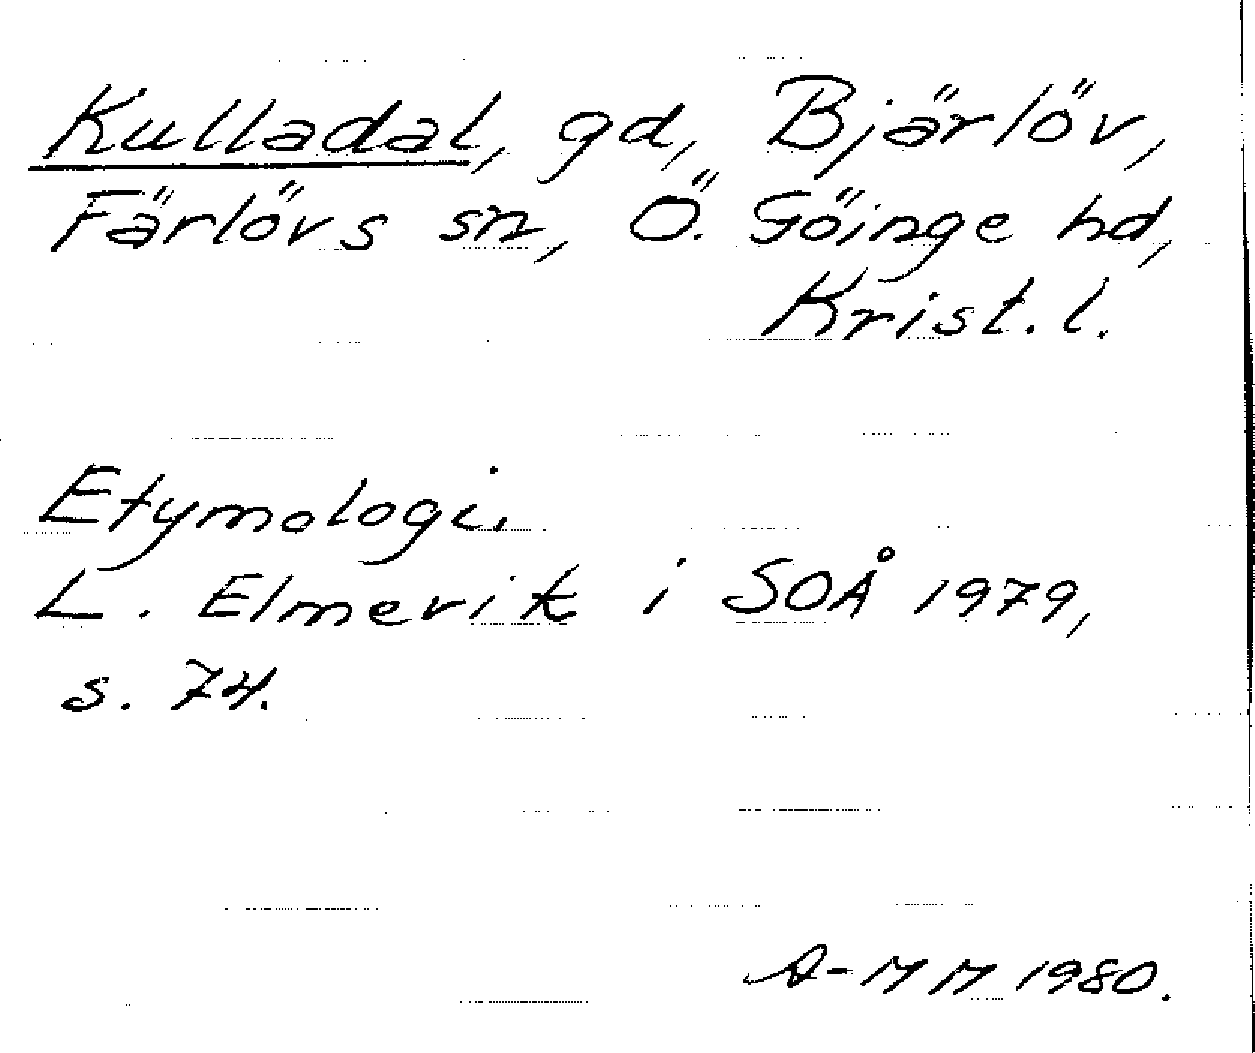 Kulladal, gd, Bjärlöv,
Färlövs sn, Ö. Göinge hd,
Krist. l.
Etymologi.
L. Elmevik i SOÅ 1979,
s. 74.
A-MM 1980.